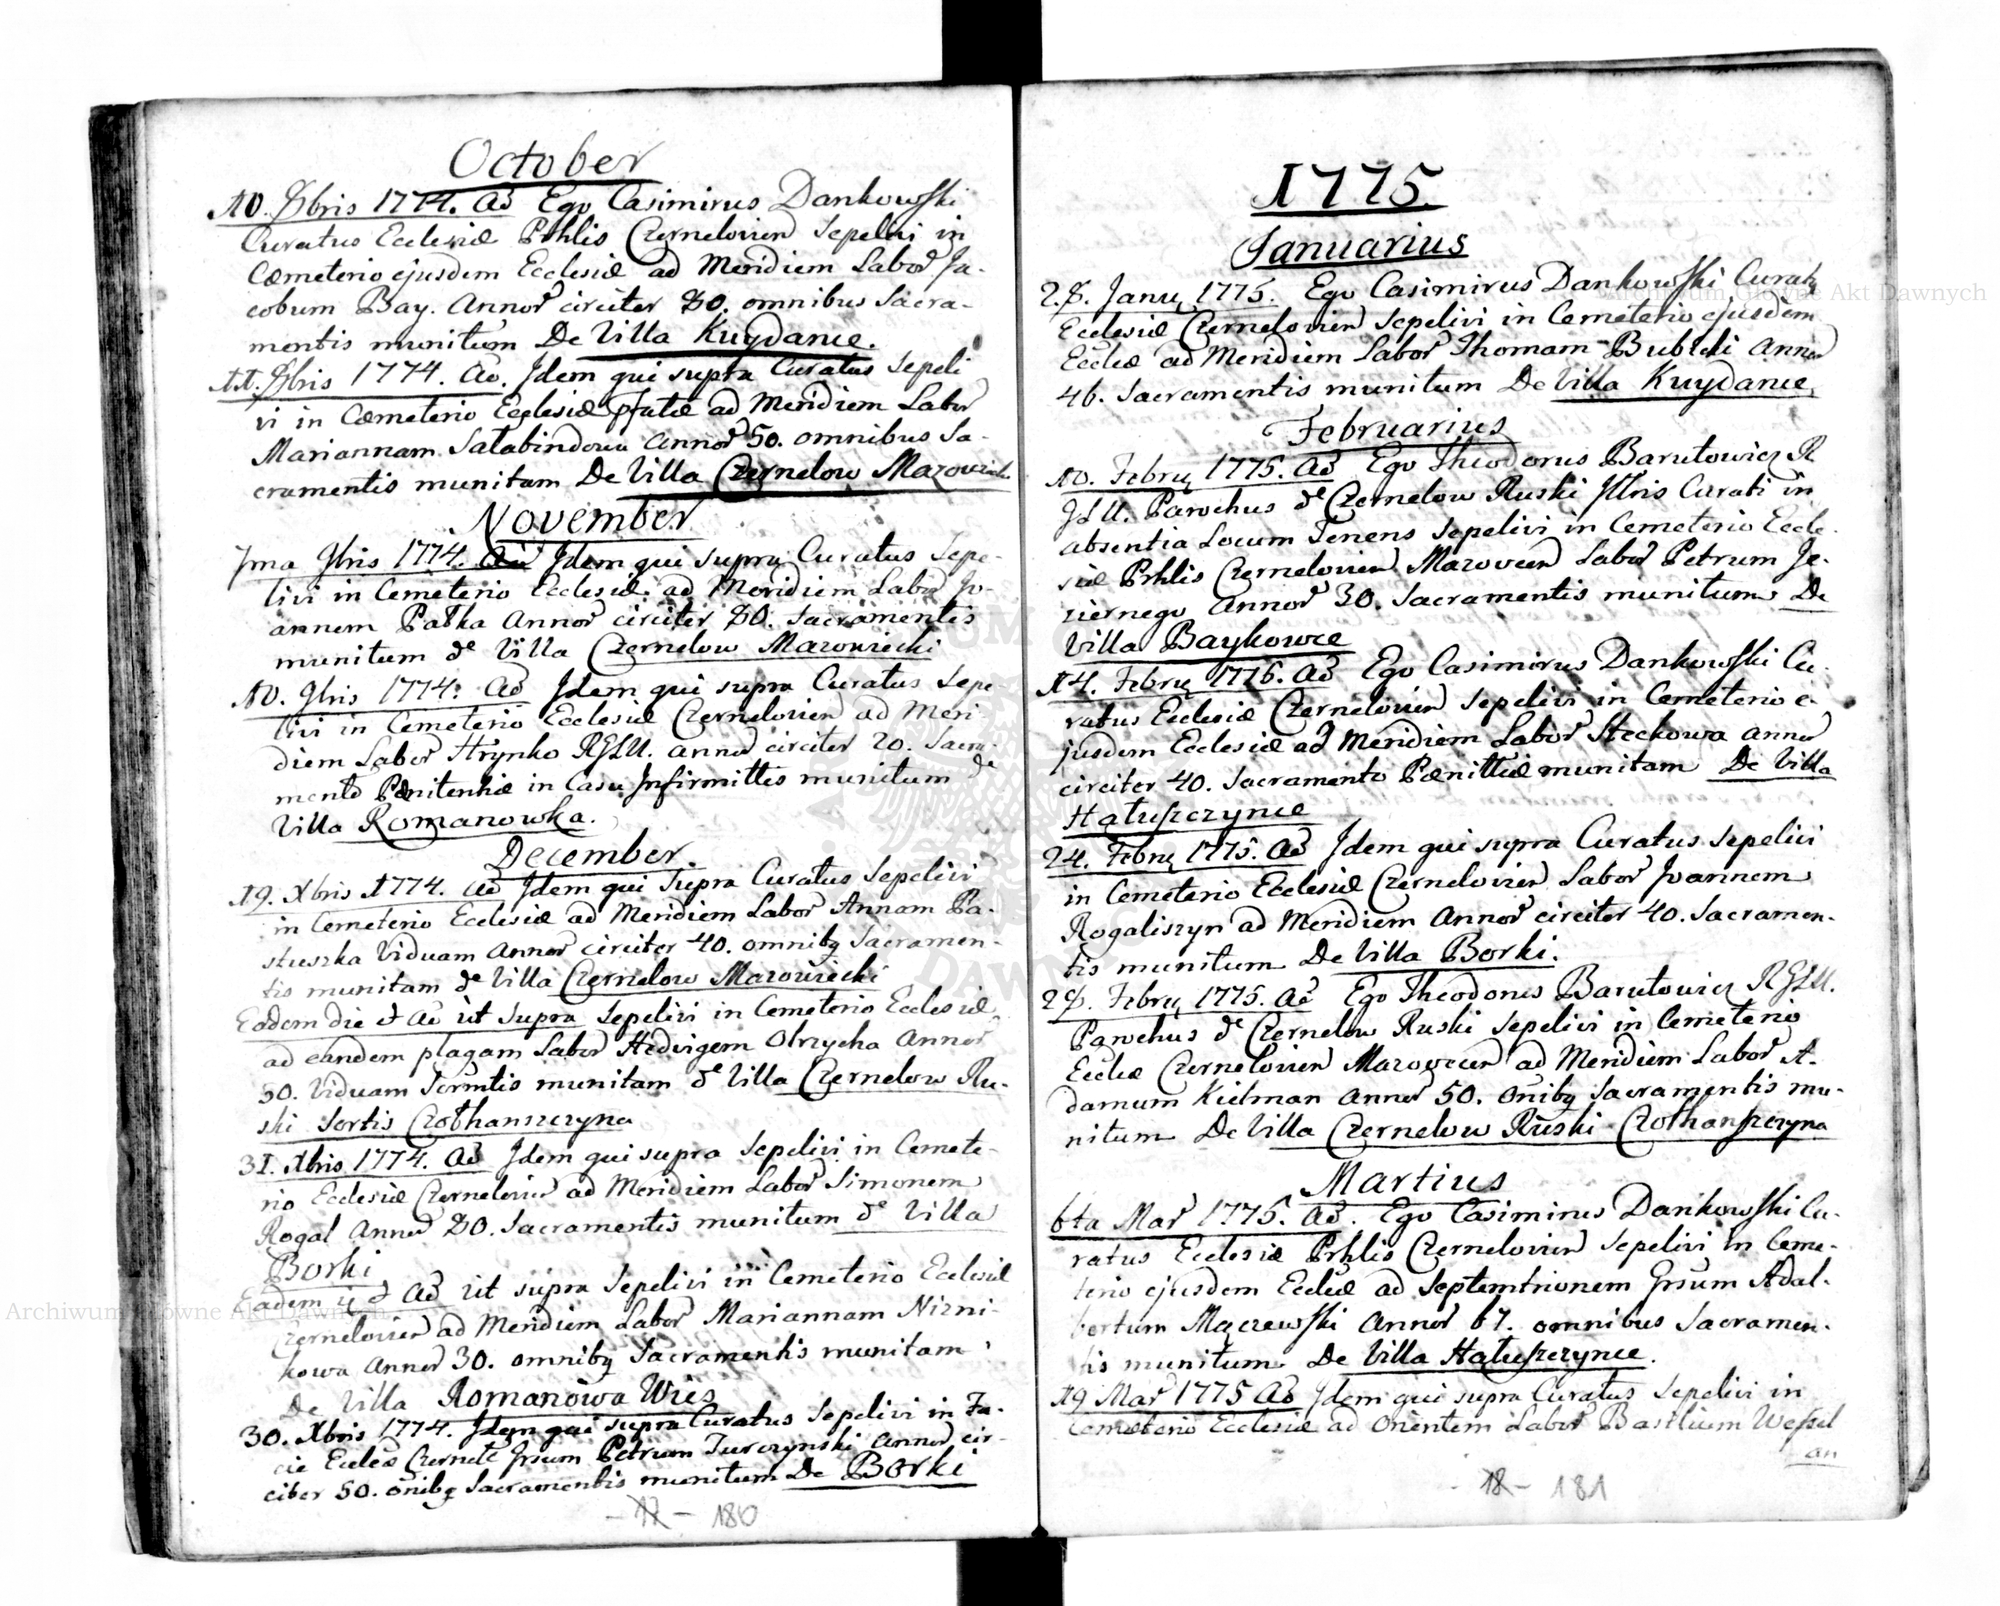 October
10. 8bris 1774. Ad Ego Casimirus Dankowski
Curatus Ecclesiæ Prhlis Czernelovien Sepelivi in
Cæmeterio ejusdem Ecclesiæ ad Meridiem Labor Ja-
cobum Bay. Annor circiter 80. omnibus Sacra-
mentis munitum De Villa Kuydance.
11. 8bris 1774. Ad. Idem qui supra Curatus Sepeli
vi in Cæmeterio Ecclesiæ pfatæ ad Meridiem Labor
Mariannam Annor 50. omnibus Sa-
cramentis munitam De Villa Czernelow Mazowiecki
November
7ma 9bris 1774. Ad Idem qui supra Curatus Sepe-
livi in Cemeterio Ecclesiæ ad Meridiem Labor Jo-
annem Patka Annor circiter 80. Sacramentis
munitum de Villa Czernelow Mazowiecki
10. 9bris 1774. Ad Idem qui supra Curatus Sepe-
livi in Cemeterio Ecclesiæ Czernelovien ad Meri-
diem Labor Hrynko RGLU. annor circiter 20. Sacra-
mento Pænitentiæ in Casu Infirmittis munitum de
Villa Romanowka.
December.
19. Xbris 1774. Ad Idem qui Supra Curatus Sepelivi
in Cemeterio Ecclesiæ ad Meridiem Labor Annam Pa-
stuszka Viduam annor circiter 40. omnibq Sacramen-
tis munitam de Villa Czernelow Mazowiecki
Eadem die & Ad ut Supra Sepelivi in Cemeterio Ecclesiæ
ad eandem plagam Labor Hedvigem Olrzycha Annor
50. Viduam Scrmtis munitam de Villa Czernelow Ru-
ski Sortis Czothanszczyna
31. Xbris 1774. Ad Idem qui supra Sepelivi in Cemete-
rio Ecclesiæ Czernelovien ad Meridiem Labor Simonem
Rogal Annor 80. Sacramentis munitum de Villa
Borki
Eadem & Ad ut supra Sepelivi in Cemeterio Ecclesiæ
Czernelovien ad Meridiem Labor Mariannam Nizni-
kowa Annor 30. omnibq Sacramentis munitam
De Villa Romanowa Wies
30. Xbris 1774. Idem qui supra Curatus Sepelivi in Fa-
cie Eccleæ Czernele Grsum Petrum Turczynski Annor cir-
citer 50. onibq Sacramentis munitum De Borki
- 17 - 180
1775.
Januarius
28. Janu 1775. Ego Casimirus Dankowski Curatq
Ecclesiæ Czernelovien Sepelivi in Cemeterio ejusdem
Eccleæ ad Meridiem Labor Thomam Bubicki Annor
46. Sacramentis munitum De Villa Kuydance,
Februarius
10. Febru 1775. Ad Ego Theodorus Barutowicz R
GLU. Parochus de Czernelow Ruski Curati in
absentia Locum Tenens Sepelivi in Cemeterio Eccle-
siæ Prhlis Czernelovien Mazoveen Labor Petrum Je-
ziernego Annor 30. Sacramentis munitum De
Villa Baykowce
14. Febru 1775. Ad Ego Casimirus Dankowski Cu-
ratus Ecclesiæ Czernelovien Sepelivi in Cemeterio e-
jusdem Ecclesiæ ad Meridiem Labor Steckowa annor
circiter 40. Sacramento Pænittiæ munitam De Villa
Hatuszczynce
24. Febru 1775. Ad Idem qui supra Curatus Sepelivi
in Cemeterio Ecclesiæ Czernelovien Labor Joannem
Rogaliszyn ad Meridiem Annor circiter 40. Sacramen-
tis munitum De Villa Borki.
28. Febru 1775. Ad Ego Theodorus Barutowicz RGLU.
Parochus de Czernelow Ruski Sepelivi in Cemeterio
Eccleæ Czernelovien Mazoveen ad Meridiem Labor A-
damum Kielman Annor 50. onibq Sacramentis mu-
nitum De Villa Czernelow Ruski Czothanszczyna
Martius
6ta Mar 1775. Ad. Ego Casimirus Dankowski Cu-
ratus Ecclesiæ Prhlis Czernelovien Sepelivi in Ceme-
terio ejusdem Eccleæ ad Septemtrionem Grsum Adal-
bertum Mączewski Annor 67. omnibus Sacramen-
tis munitum De Villa Hatuszczynce.
19 Mar 1775 Ad Idem qui supra Curatus Sepelivi in
Cemeterio Ecclesiæ ad Orientem Labor Basilium Wessel
an
- 18 - 181
Archiwum Główne Akt Dawnych
Archiwum Główne Akt Dawnych